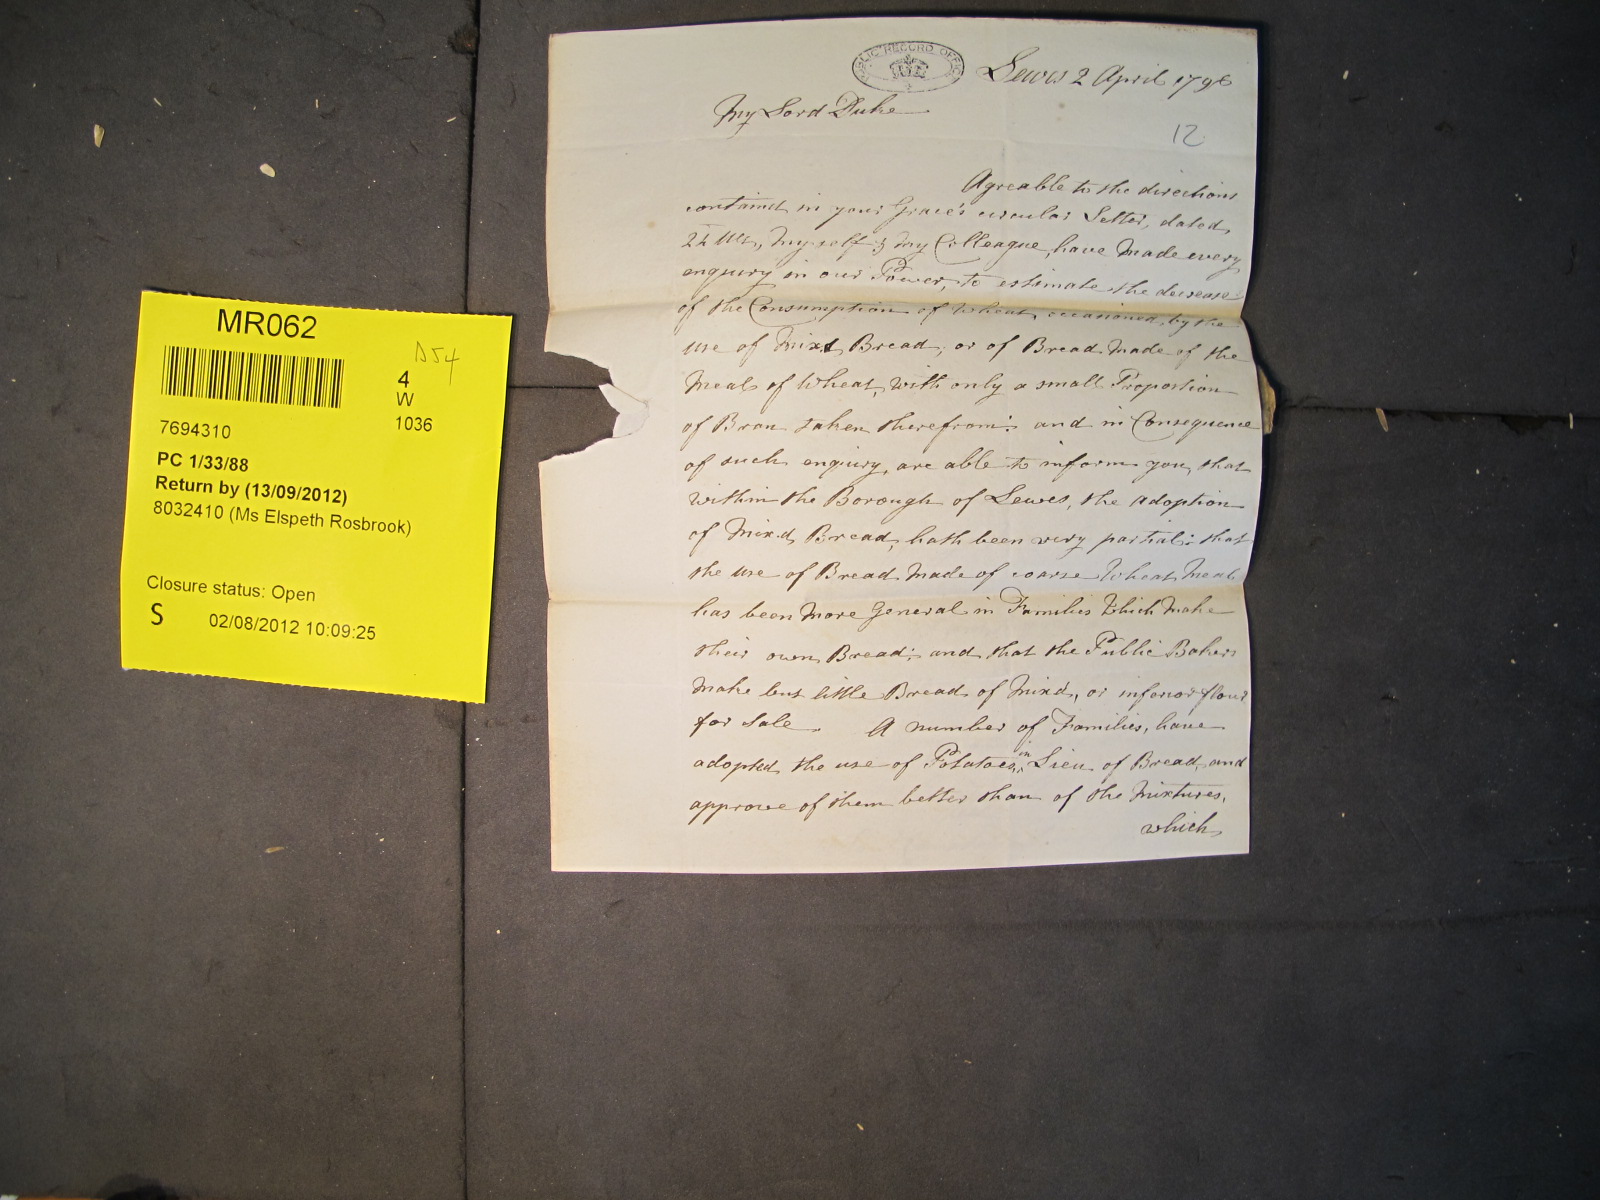 MR062
D54
4
W
1036
7694310
PC 1/33/88
Return by (13/09/2012)
8032410 (Ms Elspeth Rosbrook)
Closure status: Open
S 02/08/2012 10:09:25
PUBLIC RECORD OFFICE
Lewes 2 April 1796
My Lord Duke
12
Agreable to the directions
contained in your Grace's circular Letter, dated
Ult, myself & my Colleague, have made every
enquiry in our Power, to estimate the decrease
of the Consumption of Wheat, occasioned by the
use of Mixt Bread, or of Bread made of the
Meal of Wheat, with only a small Proportion
of Bran taken therefrom: and in Consequence
of such enquiry, are able to inform you, that
within the Borough of Lewes, the adoption
of Mix'd Bread, hath been very partial: that
the use of Bread made of coarse Wheat Meal
has been more general in Families which make
their own Bread; and that the Public Bakers
make but little Bread of Mix'd, or inferior flour
for Sale. A number of Families, have
adopted the use of Potatoes, in Lieu of Bread, and
approve of them better than of the Mixtures,
which